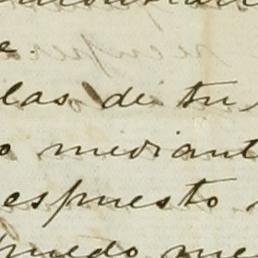 e
las de tu
o mediant
espuesto
puedo me